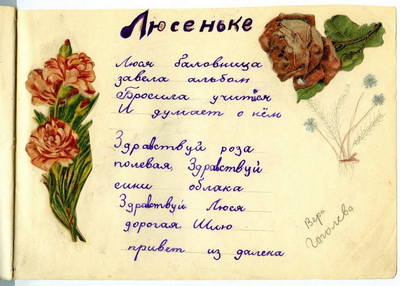 Люсеньке
Люся баловница
завела альбом
Бросила учится
И думает о нём
Здравствуй роза
полевая, Здравствуй
сини облака
Здравствуй Люся
дорогая Шлю
привет из далека
Вера
Гоголева